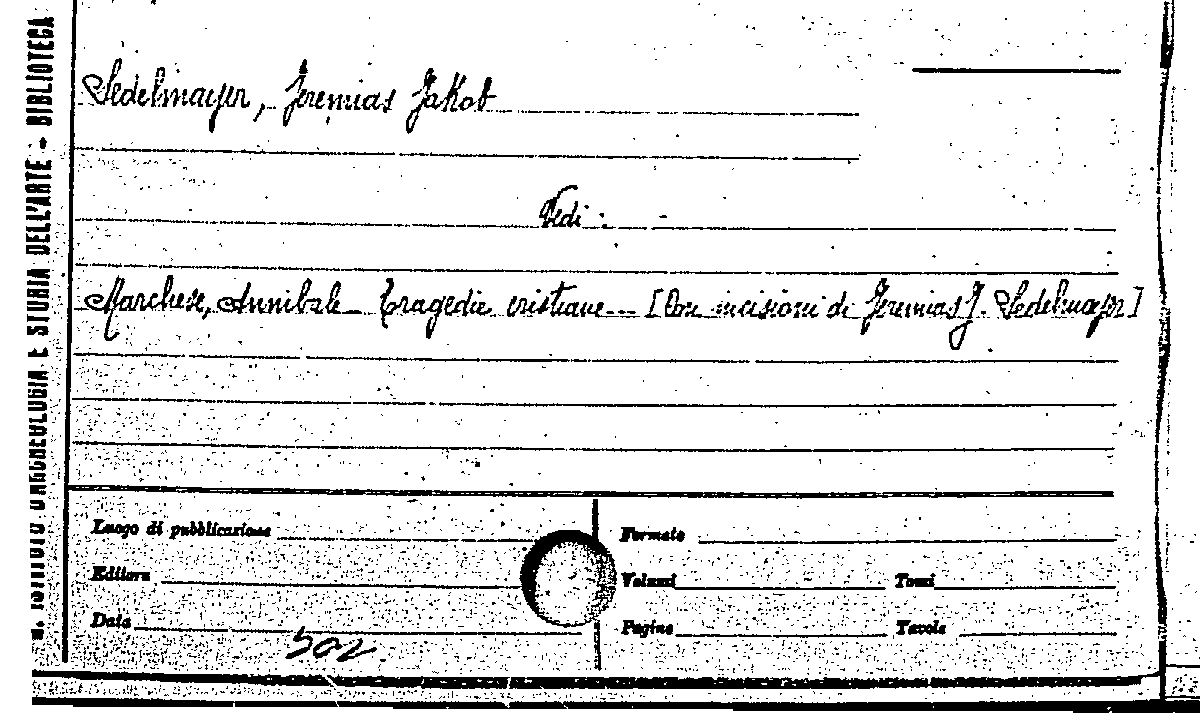 R. ISTITUTO D'ARCHEOLOGIA E STORIA DELL'ARTE - BIBLIOTECA
Sedelmayer, Jeremias Jakob
Vedi :
Marchese, Annibale_ Tragedie cristiane... [Con incisioni di Jeremias J. Sedelmayer]
Luogo di pubblicazione
Formato
Editore
Volumi Tomi
Data
Pagine Tavole
502